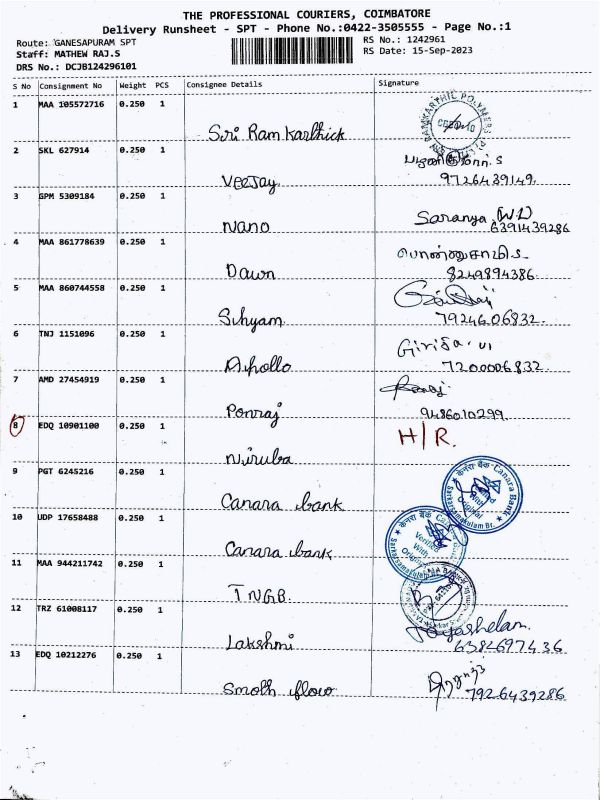 THE PROFESSIONAL COURIERS, COIMBATORE
Delivery Runsheet - SPT - Phone No.:0422-3505555 - Page No.:1
Route: GANESAPURAM SPT RS No.: 1242961
Staff: MATHEW RAJ.S RS Date: 15-Sep-2023
DRS No.: DCJB124296101
S No Consignment No Weight PCS Consignee Details Signature
1 MAA 105572716 0.250 1
Siri Ram Karthick
2 SKL 627914 0.250 1
Veejay 9726439149.
3 GPM 5309184 0.250 1 Saranya
Nano 6391439286
4 MAA 861778639 0.250 1 பொன்னுசாமி.S
Dawn 8249894386.
5 MAA 860744558 0.250 1
Sihyam 7924606832.
6 TNJ 1151096 0.250 1
Apollo 7200006832.
7 AMD 27454919 0.250 1
Ponraj 9486010299.
8 EDQ 10901100 0.250 1 H/R.
Niruba
9 PGT 6245216 0.250 1
Canara bank
केनरा बैंक Canara Bank
10 UDP 17658488 0.250 1
Canara bank
केनरा बैंक
Verified
With
Original
11 MAA 944211742 0.250 1
TNGB.
12 TRZ 61008117 0.250 1
Lakshmi 6382697436
13 EDQ 10212276 0.250 1
Smoth flow 7926439286